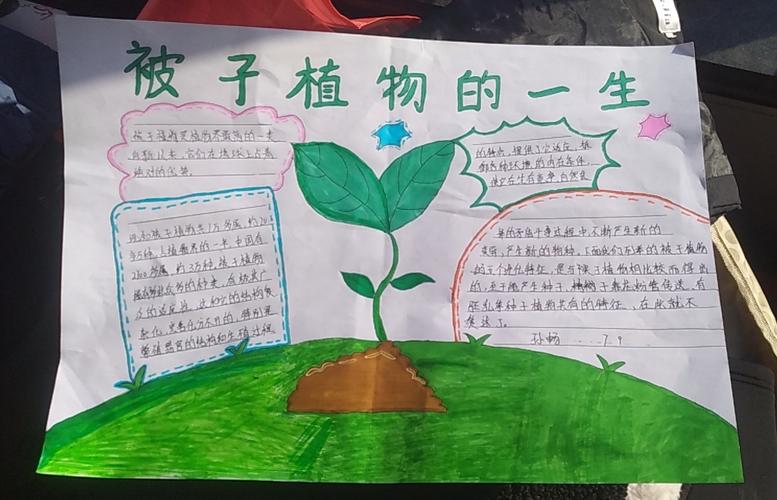 被子植物的一生
被子植物是植物界最高的一类
自新以来,它们在地球上占着
绝对的优势。
现知被子植物共1万多属,约20多
万种,占植物界的一半,中国有
2700多属,约3万种。被子植物
能有如此众多的种类,有极其广
泛的适应性,这和它的结构复
杂化、完善化分不开的,特别是
繁殖器官的结构和生殖过程
的特点,提供了它适应、抵
御各种环境的内在条件,
使它在生存竞争、自然选
择的矛盾斗争过程中,不断产生新的
变异,产生新的物种。下面我们列举的被子植物
的五个进化特征,是与裸子植物相比较而得出
的,至于能产生种子、精子靠花粉管传送、有
胚乳等种子植物共有的特征,在此就不
赘述了。
孙畅 7.9